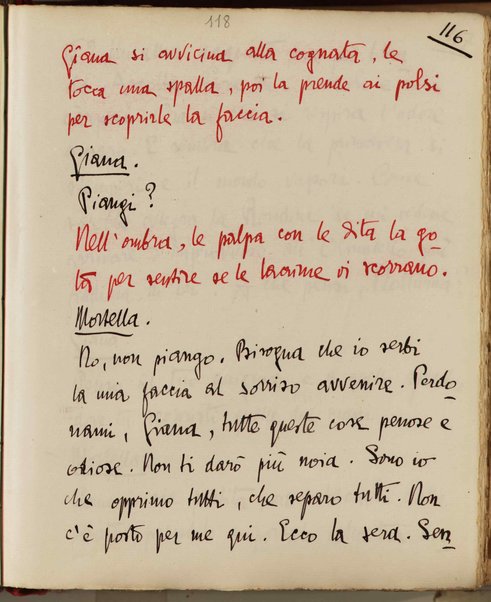 118
116
Giana si avvicina alla cognata, le
tocca una spalla, poi la prende ai polsi
per scoprirle la faccia.
Giana.
Piangi?
Nell'ombra, le palpa con le dita la go-
ta per sentire se le lacrime vi scorrano.
Mortella.
No, non piango. Bisogna che io serbi
la mia faccia al sorriso avvenire. Perdo-
nami, Giana, tutte queste cose penose e
odiose. Non ti darò più noia. Sono io
che opprimo tutti, che separo tutti. Non
c'è posto per me qui. Ecco la sera. Sen-